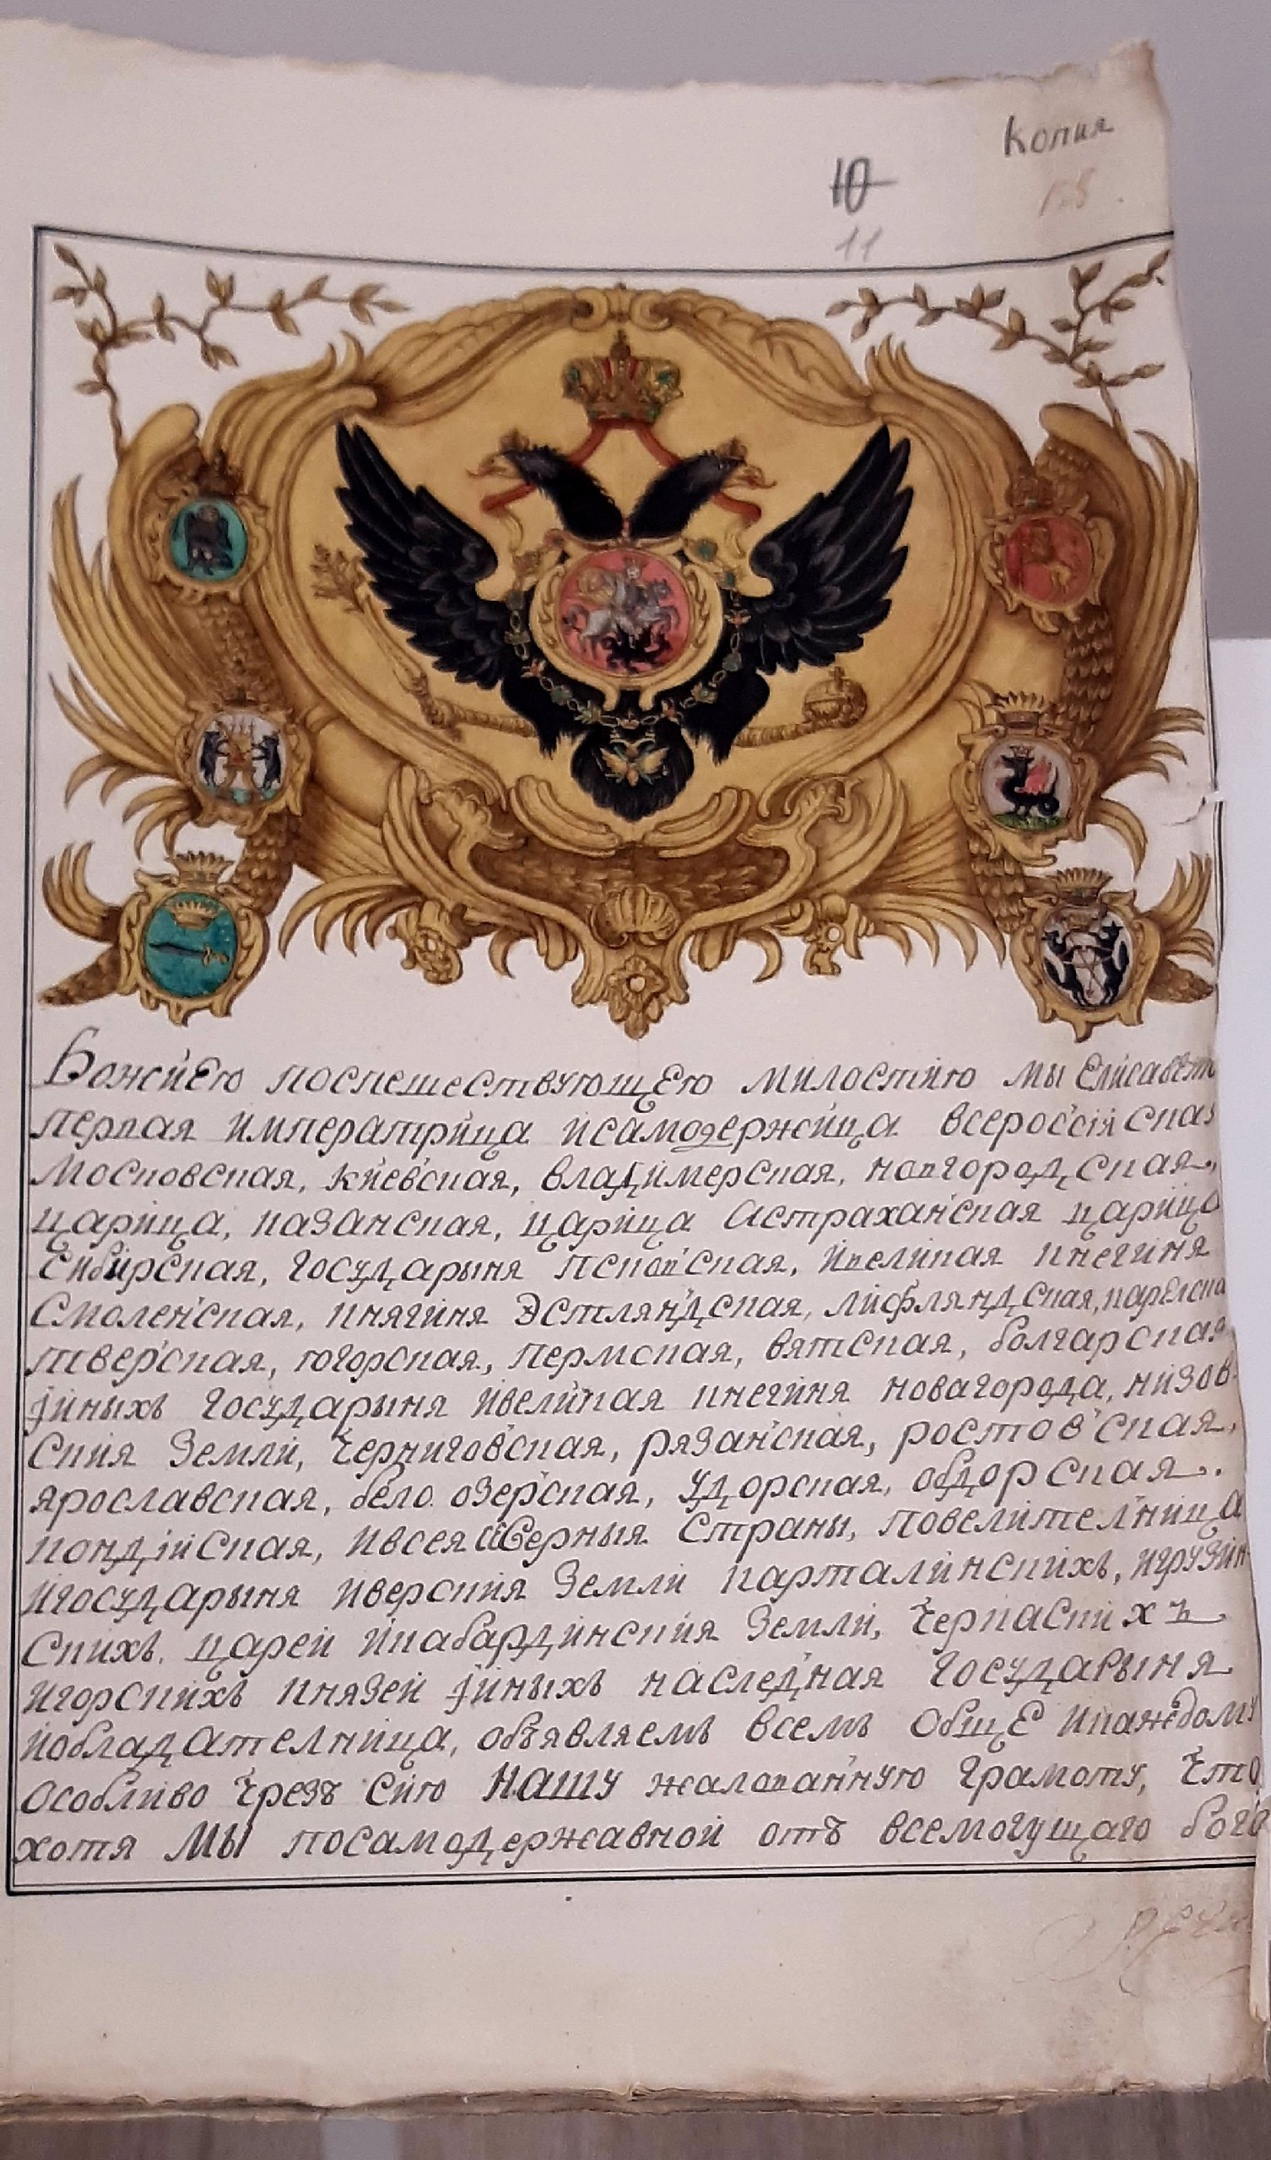 Копия
10
11
Божиею поспешествующею милостию мы Елисаветъ
первая императрица исамодержица всероссиская
Московская, киевская, владимерская, новгородская,
царица, казанская, царица астраханская царица
сибирская, государыня псковская, ивеликая кнегиня
смоленская, княгиня эстляндская, лифляндская, карелска
тверская, югорская, пермская, вятская, болгарская
iиныхъ государыня ивеликая кнегиня новагорода, низов-
ския земли, черниговская, рязанская, ростовская,
ярославская, бело озерская, удорская, обдорская.
кондiйская, ивсея северныя страны, повелителница
игосударыня иверския земли карталинскихъ, игрузин-
скихъ. царей икабардинския земли, черкаскихъ
игорскихъ князей iиныхъ наследная государыня
иобладателница, объявляемъ всемъ обще икаждому
особливо чрезъ сию нашу жалованную грамоту, что
хотя мы посамодержавной отъ всемогущаго бога